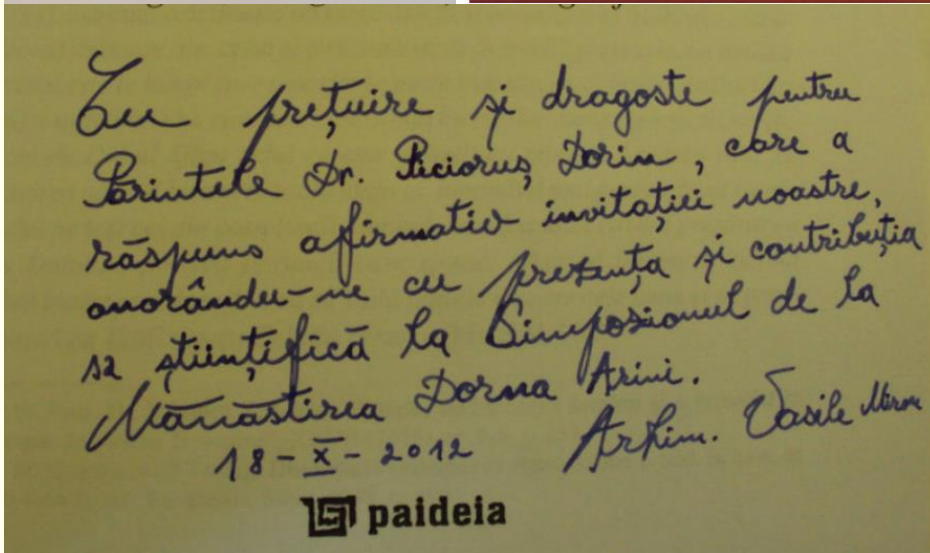 Cu prețuire și dragoste pentru
Părintele Dr. Picioruș Dorin, care a
răspuns afirmativ invitației noastre,
onorându-ne cu prezența și contribuția
sa științifică la Simpozionul de la
Mănăstirea Dorna Arini.
18-X-2012 Arhim. Vasile Miron
paideia